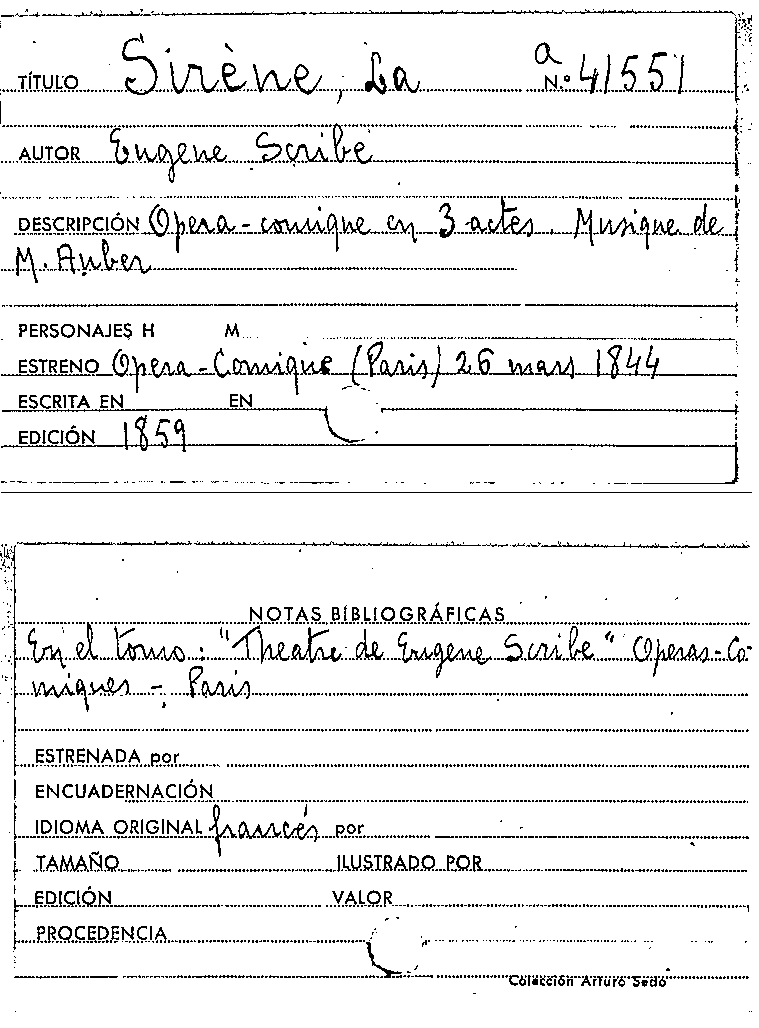 TÍTULO Sirène, La a N.º 41551
AUTOR Eugene Scribe
DESCRIPCIÓN Opera-comique en 3 actes. Musique de
M. Auber
PERSONAJES H M
ESTRENO Opera-Comique (Paris) 26 mars 1844
ESCRITA EN EN
EDICIÓN 1859
NOTAS BIBLIOGRÁFICAS
En el tomo: "Theatre de Eugene Scribe" Operas-Co-
miques - Paris
ESTRENADA por
ENCUADERNACIÓN
IDIOMA ORIGINAL francés por
TAMAÑO ILUSTRADO POR
EDICIÓN VALOR
PROCEDENCIA
Colección Arturo Sedó